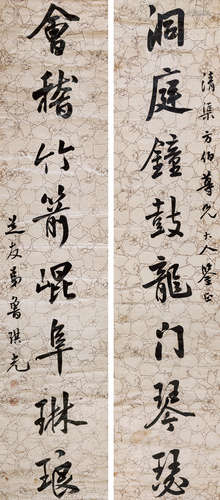 清渠方伯尊兄大人鉴正
洞庭鐘鼓龍门琴瑟
會稽竹箭崐阜琳琅
芝友弟魯琪光